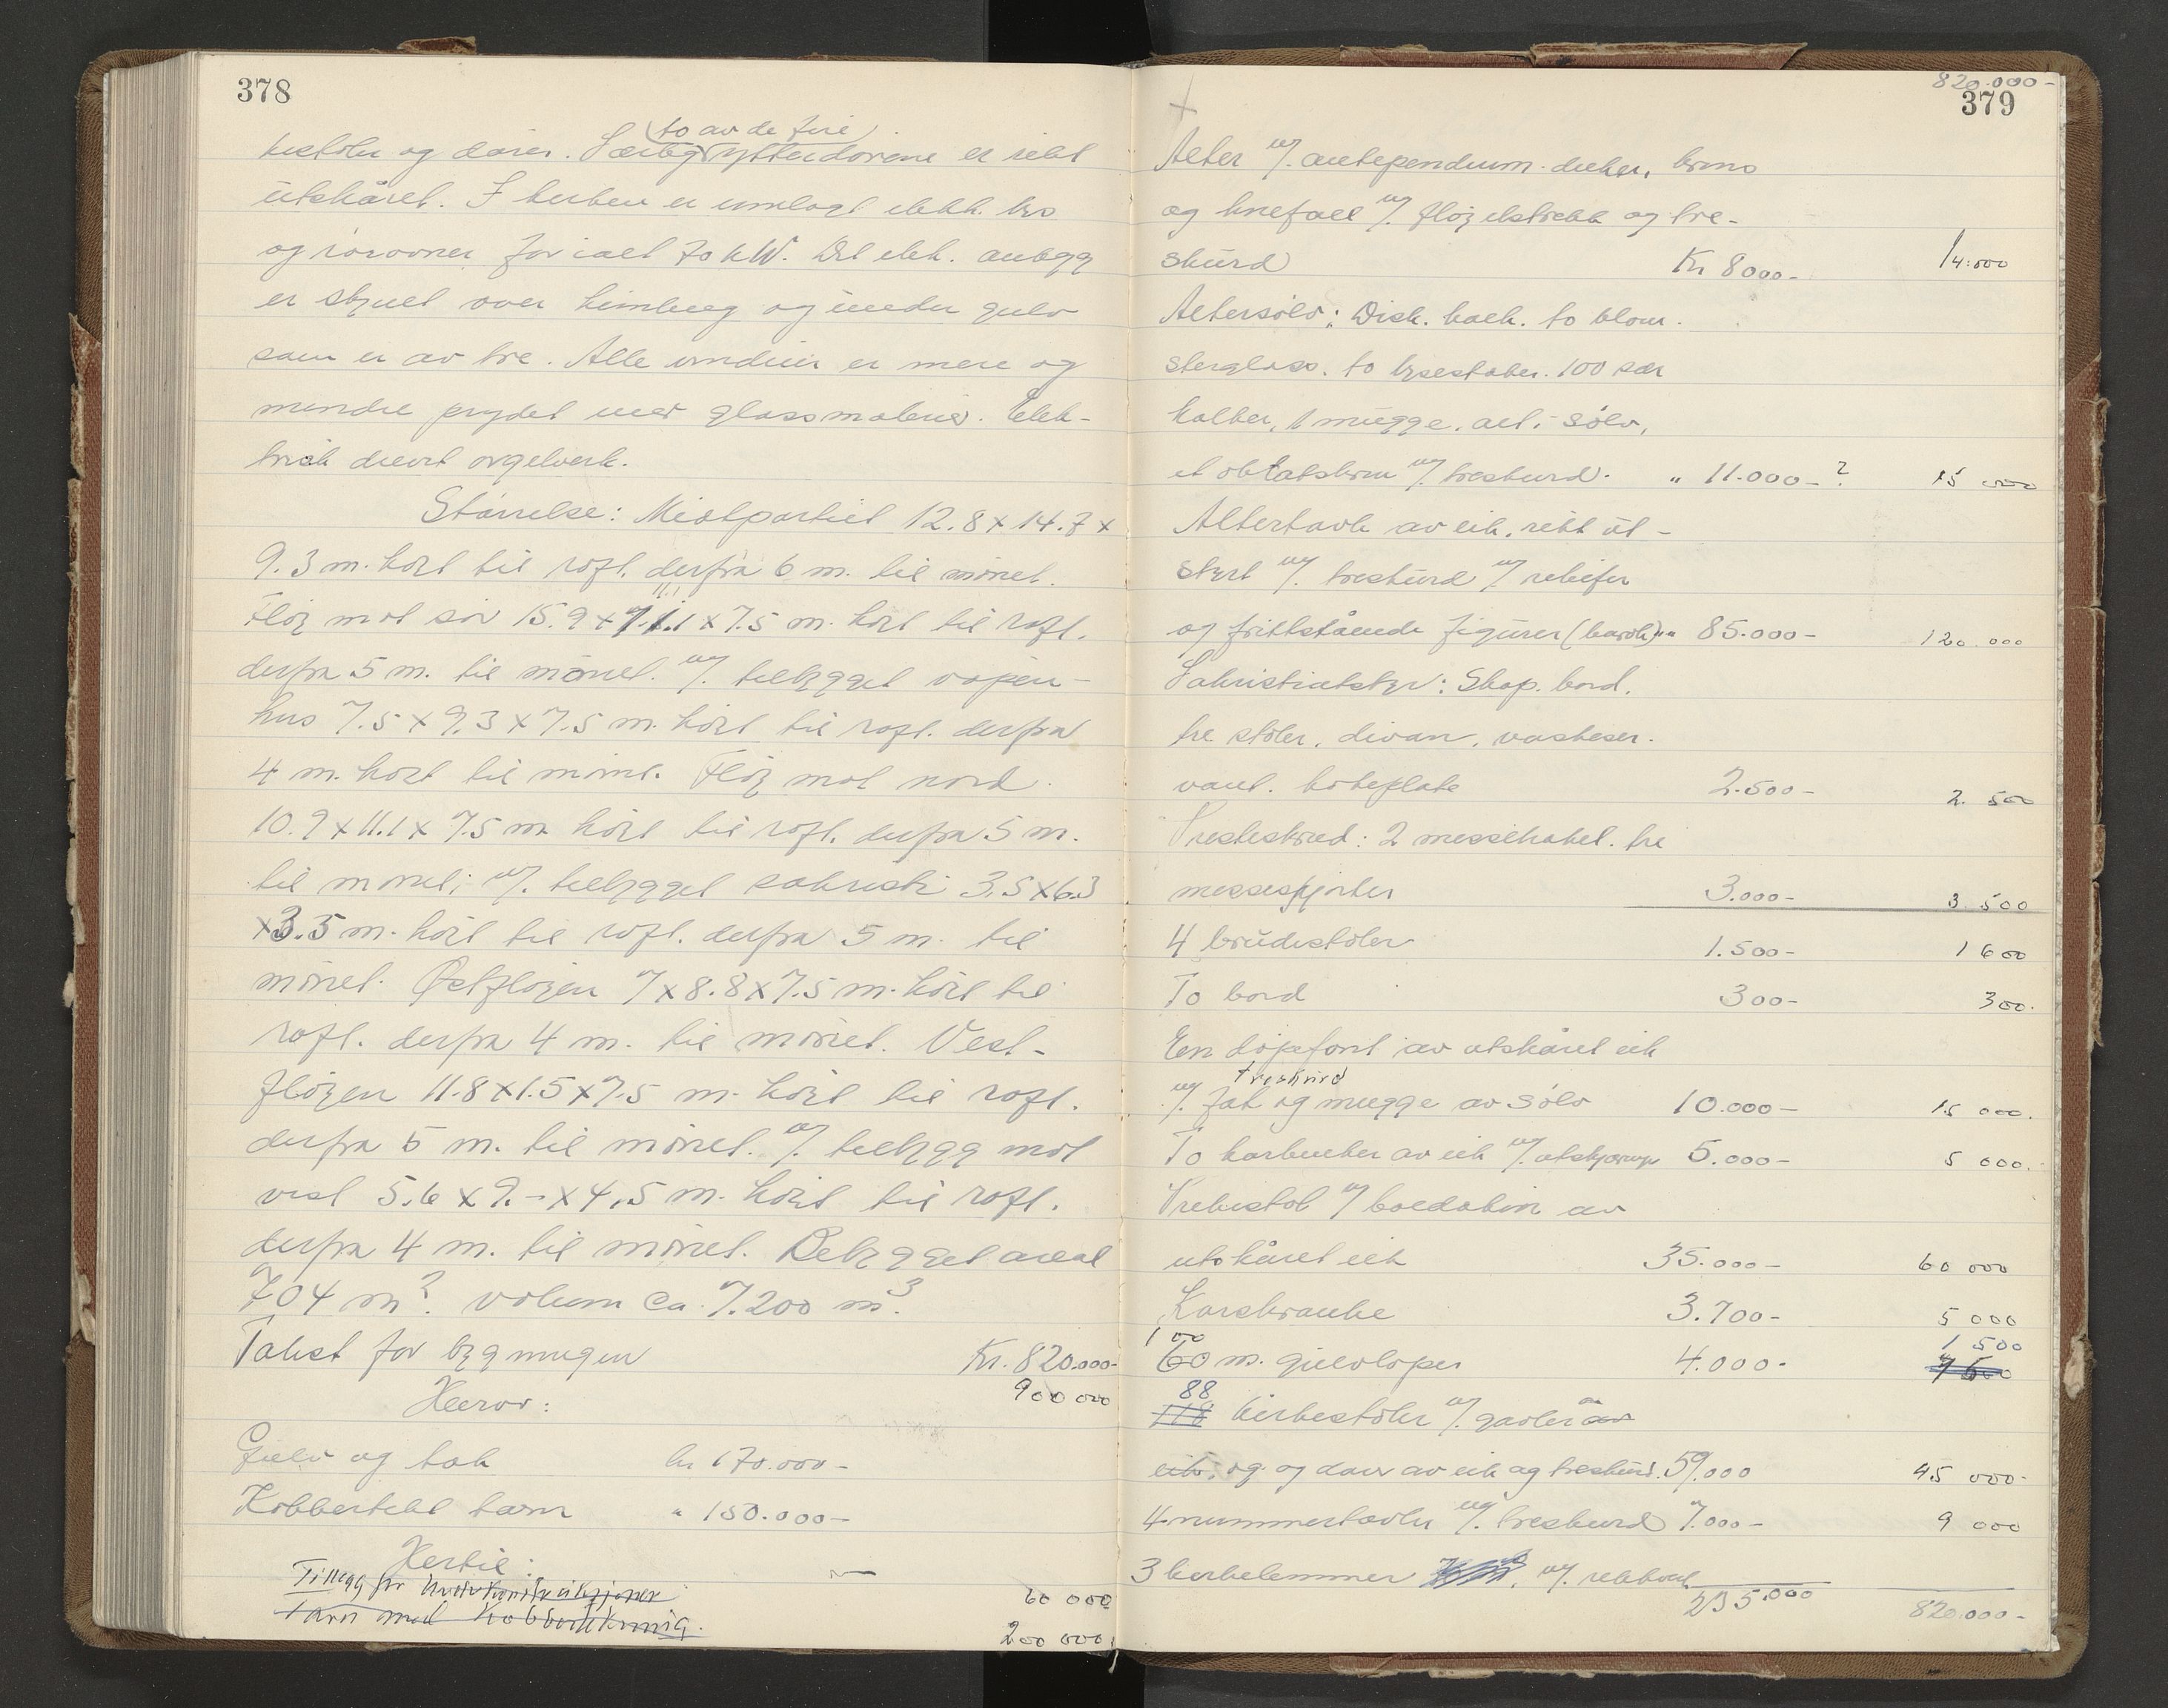 378
(to av de fire)
kestoler og dører. Særleg ytterdørene er rikt
utskåret. I kirken er innlagt elekt. lys
og rørovner for ialt 70 kW. Det elek. anlegg
er skjuet over himling og under gulv
som er av tre. Alle vinduer er mere og
mindre prydet med glassmalerier. Elek-
trisk drevet orgelverk.
Størrelse: Midtpartiet 12.8 x 14.7 x
9.3 m. høit til røft. derfra 6 m. til mønet.
Fløy mot sør 15.9 x 11.1 x 7.5 m. høit til røft.
derfra 5 m. til mønet. m/. tilbygget våpen-
hus 7.5 x 9.3 x 7.5 m. høit til røft. derfra
4 m. høit til mønet. Fløy mot nord.
10.9 x 11.1 x 7.5 m høit til røft. derfra 5 m.
til mønet; m/. tilbygget sakristi 3.5 x 6.3
x 3.5 m. høit til røft. derfra 5 m. til
mønet. Østfløyen 7 x 8.8 x 7.5 m. høit til
røft. derfra 4 m. til mønet. Vest-
fløyen 11.8 x 1.5 x 7.5 m. høit til røft.
derfra 5 m. til mønet. m/. tilbygg mot
vest 5.6 x 9.- x 4,5 m. høit til røft.
derfra 4 m. til mønet. Bebygget areal
704 m². volum ca. 7.200 m³.
Takst for bygningen Kr. 820.000-
Herav: 900 000
Gulv og tak kr 170.000-
Kobbertekt tårn " 150.000-
Hertil:
Tillegg for 60 000
tårn med kobbertekning. 200 000.
820.000-
379
Alter m/. antependium. duker, krms
og knefall m/. fløyelstrekk og tre-
skurd Kr 8000- 14.000
Altersølv: Disk. kalk. to blom-
sterglass. to lysestaker. 100 sær
kalker, 1 mugge. alt i sølv,
et oblatskrin m/. treskurd. " 11.000-? 15 000
Altertavle av eik. rikt ut-
styrt m/. treskurd m/. relieffer
og frittstående figurer (barok) " 85.000- 120.000
Sakristiutstyr: Skap. bord.
tre stoler, divan, vaskeser-
vant. kokeplate 2.500- 2.500
Presteskrud: 2 messehakel. tre
messeskjorter 3.000- 3.500
4 brudestoler 1.500- 1 600
To bord 300- 300.
En døpefont av utskåret eik
treskurd
m/. fat og mugge av sølv 10.000- 15 000.
To korbuker av eik m/. utskjæringer 5.000- 5 000.
Prekestol m/ baldakin av
utskåret eik 35.000- 60 000
Korskranke 3.700- 5 000
100 1 500
60 m. gulvløper 4.000- 7500
88
118 kirkestoler m/. gavler av
eik. og og dører av eik og treskurd. 59.000 45 000-
4 nummertavler m/. treskurd 7.000- 9 000
3 kirkelemmer m/.
235.000 820.000-